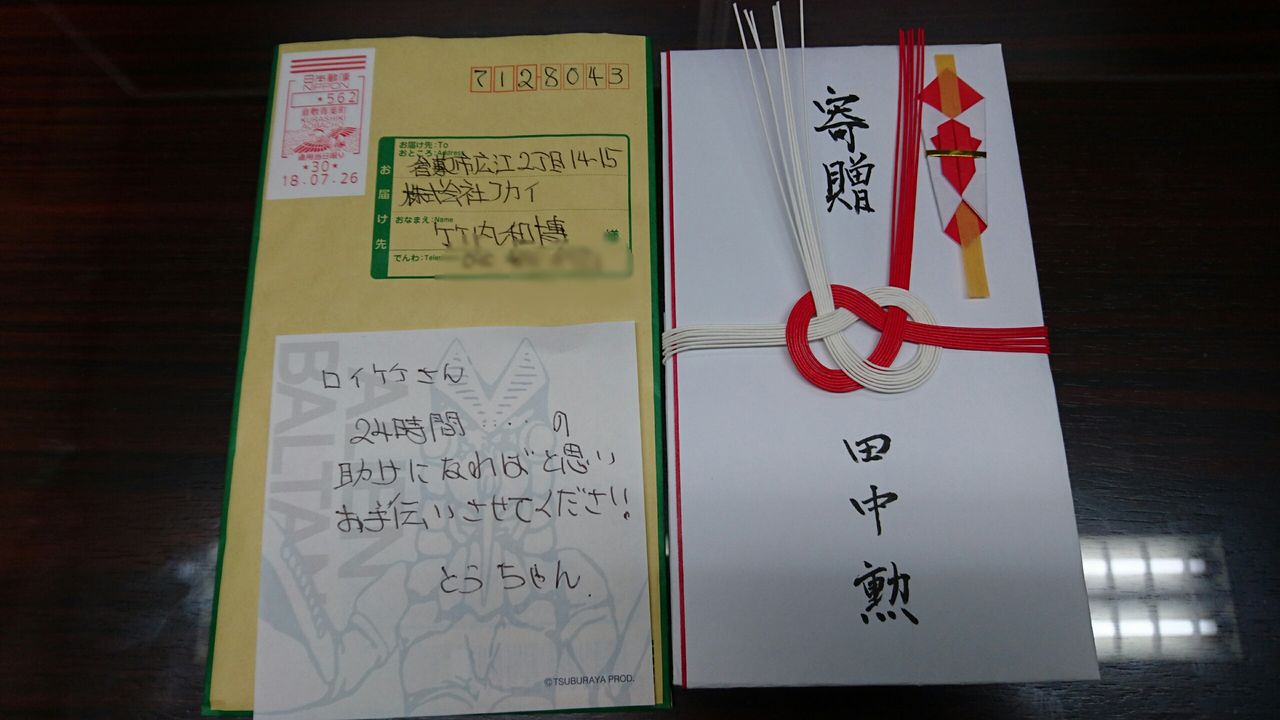 日本郵便
NIPPON
*562
倉敷青葉町
KURASHIKI
AOBACHO
適用当日限り
*30*
18.07.26
7128043
お届け先
お届け先:To
おところ:Address
倉敷市広江2丁目14-15
株式会社フカイ
おなまえ:Name
竹内和博 様
でんわ:Tele
ALIEN
BALTAN
ロイケケさん
24時間‥‥の
助けになればと思い
お手伝いさせてください!
とらちゃん.
©TSUBURAYA PROD.
寄贈
田中勲